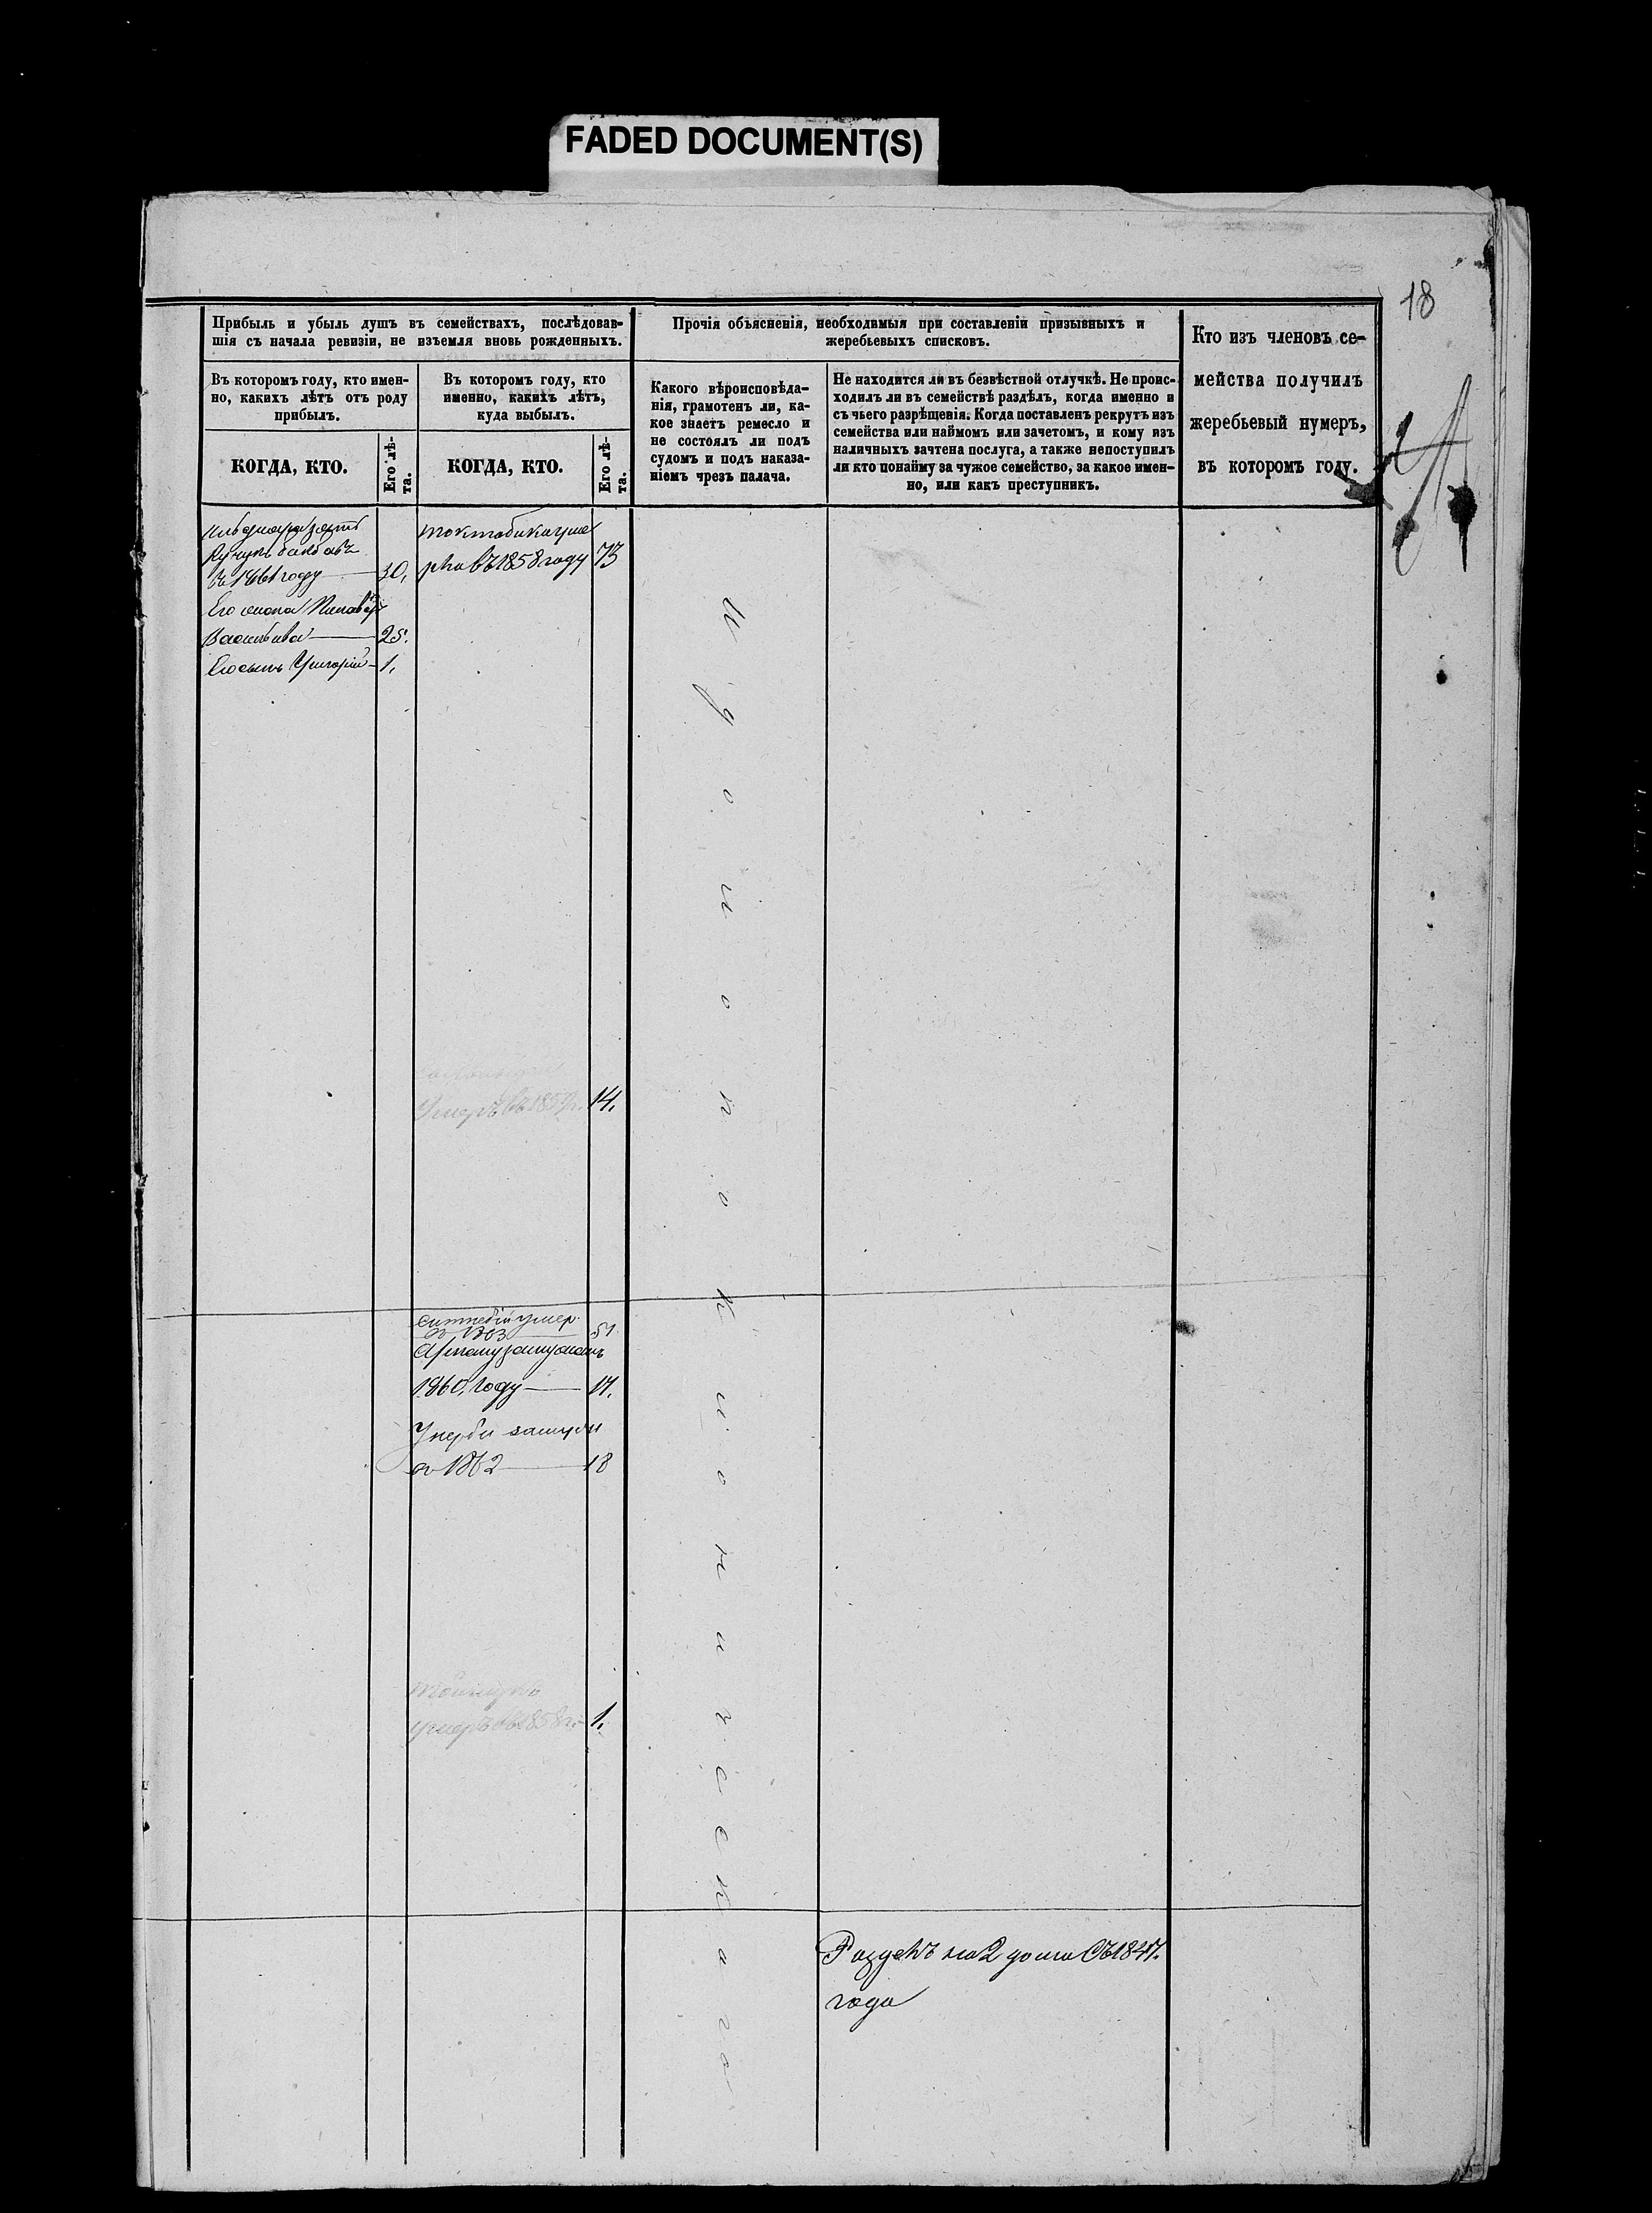 FADED DOCUMENT(S)
18
Прибыль и убыль душъ въ семействахъ, послѣдовав-
шія съ начала ревизіи, не изъемля вновь рожденныхъ.
Въ которомъ году, кто имен-
но, какихъ лѣтъ отъ роду
прибылъ.
КОГДА, КТО.
Его лѣ-
та.
Въ которомъ году, кто
именно, какихъ лѣтъ,
куда выбылъ.
КОГДА, КТО.
Его лѣ-
та.
Прочія объясненія, необходимыя при составленіи призывныхъ и
жеребьевыхъ списковъ.
Какого вѣроисповѣда-
нія, грамотенъ ли, ка-
кое знаетъ ремесло и
не состоялъ ли подъ
судомъ и подъ наказа-
ніемъ чрезъ палача.
Не находится ли въ безвѣстной отлучкѣ. Не проис-
ходилъ ли въ семействѣ раздѣлъ, когда именно и
съ чьего разрѣщенія. Когда поставленъ рекрутъ изъ
семейства или наймомъ или зачетомъ, и кому изъ
наличныхъ зачтена послуга, а также непоступилъ
ли кто понайму за чужое семейство, за какое имен-
но, или какъ преступникъ.
Кто изъ членовъ се-
мейства получилъ
жеребьевый нумеръ,
въ которомъ году.
въ 1861 году 30,
Его жена
Васильева 25.
Его сынъ Григорій 1,
въ 1858 году 73
Умеръ въ 185 г. 14.
умер.
в 1863 51
1860, году 17.
в 1862 18
умеръ въ 1858 г. 1,
Идолопоклоническаго
Раздѣлъ на 2 дома съ 1847.
года